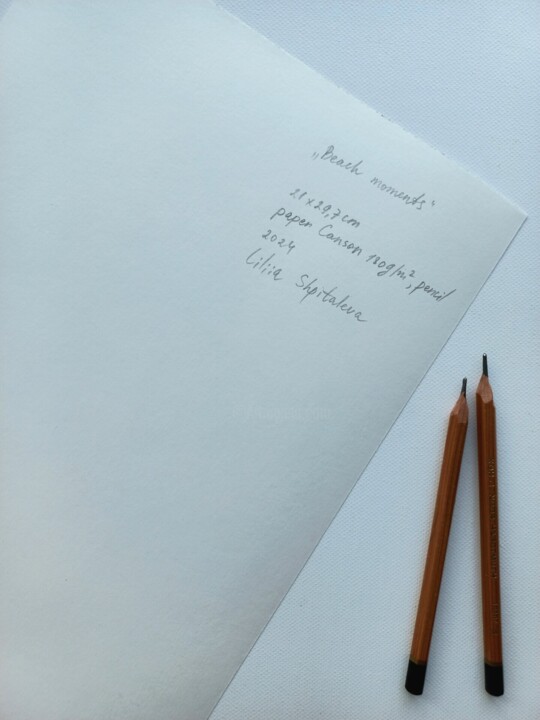 „Beach moments“
21 x 29,7 cm
paper Canson 180g/m², pencil
2024
Liliia Shpitaleva